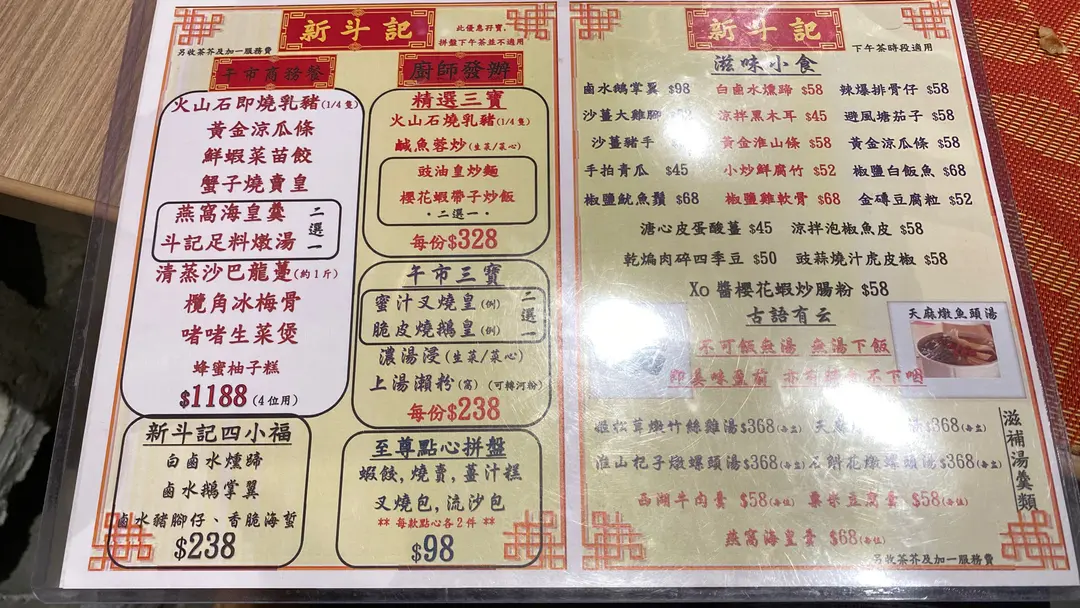 新斗記
此優惠孖寶,
拼盤下午茶並不適用
另收茶芥及加一服務費
午市商務餐
火山石即燒乳豬(1/4隻)
黃金涼瓜條
鮮蝦菜苗餃
蟹子燒賣皇
燕窩海皇羹
斗記足料燉湯
二選一
清蒸沙巴龍躉(約1斤)
欖角冰梅骨
啫啫生菜煲
蜂蜜柚子糕
$1188(4位用)
新斗記四小福
白鹵水燻蹄
鹵水鵝掌翼
鹵水豬腳仔、香脆海蜇
$238
廚師發辦
精選三寶
火山石燒乳豬(1/4隻)
鹹魚蓉炒(生菜/菜心)
豉油皇炒麵
櫻花蝦帶子炒飯
·二選一·
每份$328
午市三寶
蜜汁叉燒皇(例)
脆皮燒鵝皇(例)
二選一
濃湯浸(生菜/菜心)
上湯瀨粉(窩)(可轉河粉)
每份$238
至尊點心拼盤
蝦餃,燒賣,薑汁糕
叉燒包,流沙包
**每款點心各2件**
$98
新斗記
下午茶時段適用
滋味小食
鹵水鵝掌翼 $98 白鹵水燻蹄 $58 辣爆排骨仔 $58
沙薑大雞腳 涼拌黑木耳 $45 避風塘茄子 $58
沙薑豬手 黃金淮山條 $58 黃金涼瓜條 $58
手拍青瓜 $45 小炒鮮腐竹 $52 椒鹽白飯魚 $68
椒鹽魷魚鬚 $68 椒鹽雞軟骨 $68 金磚豆腐粒 $52
溏心皮蛋酸薑 $45 涼拌泡椒魚皮 $58
乾煸肉碎四季豆 $50 豉蒜燒汁虎皮椒 $58
Xo 醬櫻花蝦炒腸粉 $58
古語有云
天麻燉魚頭湯
不可飯無湯 無湯下飯
即美味盈前 亦有 不下咽
滋補湯羹類
姬松茸燉竹絲雞湯$368 天麻 $368
淮山杞子燉螺頭湯$368 石斛花燉螺頭湯$368
西湖牛肉羹 $58(每位) 粟米豆腐羹 $58(每位)
燕窩海皇羹 $68(每位)
另收茶芥及加一服務費